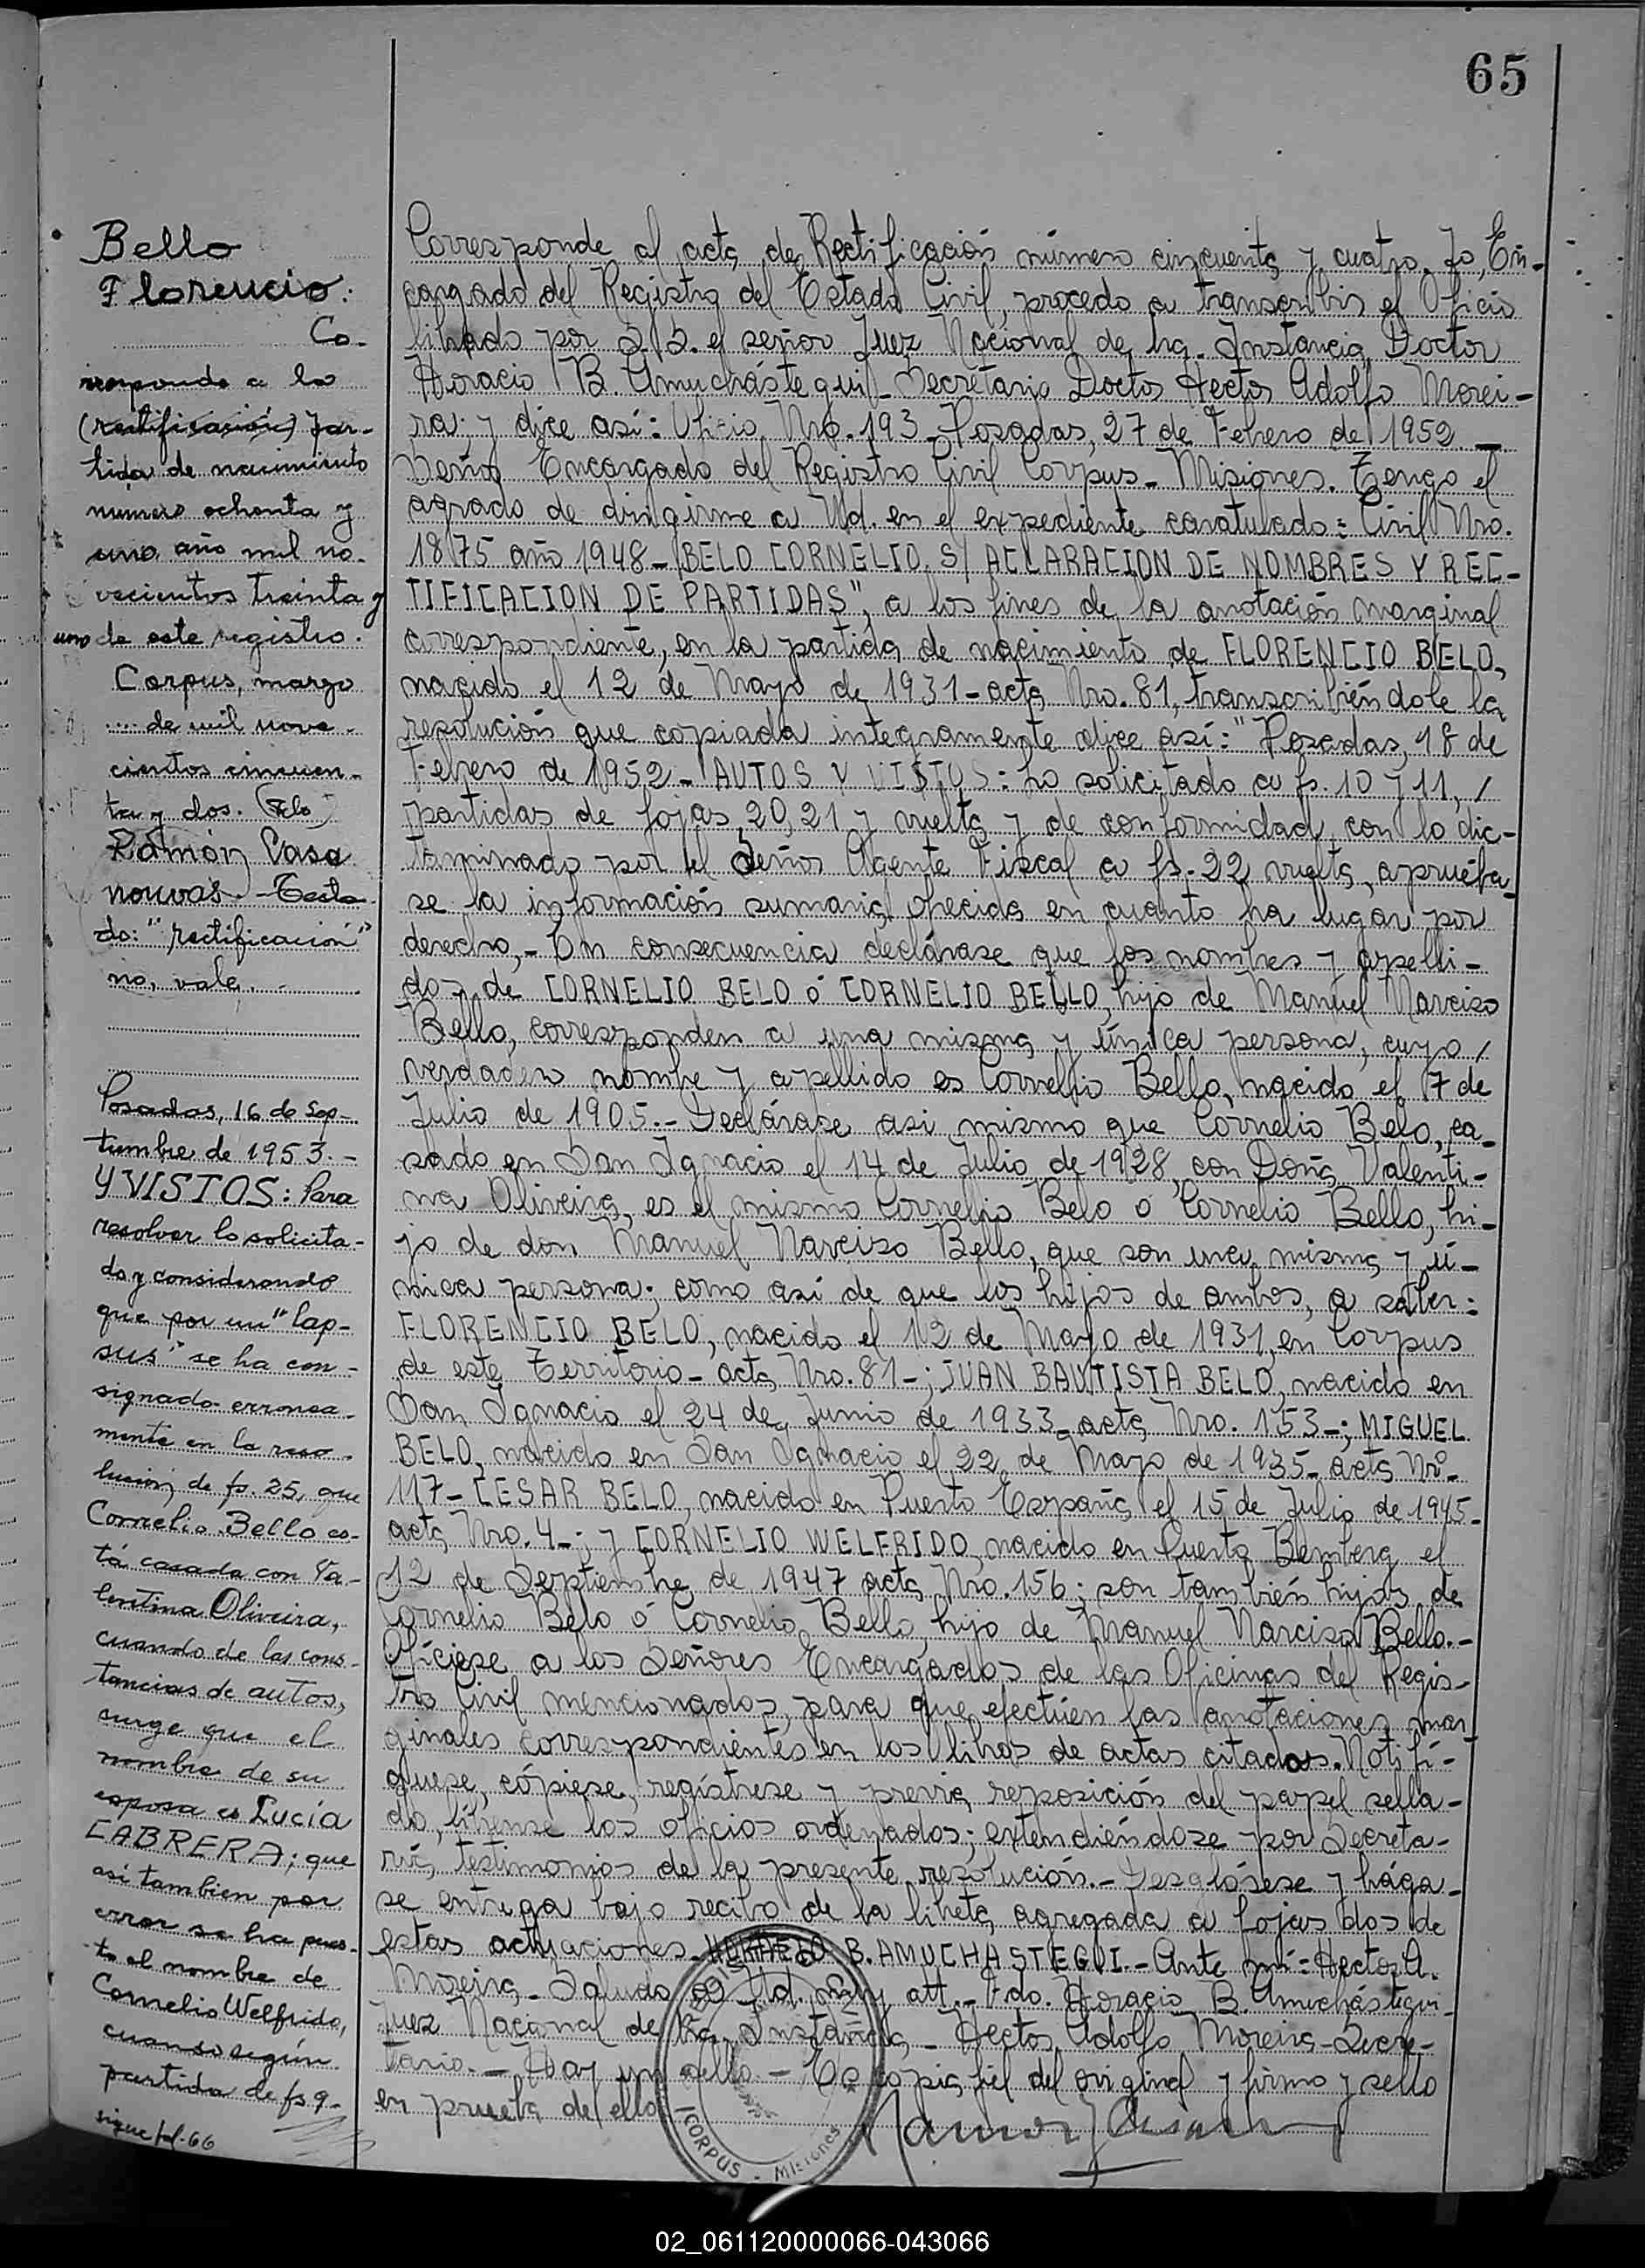 65
Bello
Florencio:
Co-
rresponde a la
(rectificación) par-
tida de nacimiento
numero ochenta y
uno, año mil no-
vecientos treinta y
uno de este registro.
Corpus, marzo
.... de mil nove-
cientos cincuen-
ta y dos. (Fdo)
Ramón Casa
nouvas - Testa-
do: "rectificación"
no, vale.
Posadas, 16 de Sep-
tiembre de 1953.-
Y VISTOS: Para
resolver lo solicita-
do y considerando
que por un "lap-
sus" se ha con-
signado erronea-
mente en la reso-
lución de fs. 25, que
Cornelio Bello es-
tá casado con Va-
lentina Oliveira,
cuando de las cons-
tancias de autos,
surge que el
nombre de su
esposa es Lucía
CABRERA; que
asi tambien por
error se ha pues-
to el nombre de
Cornelio Welfrido,
cuando según
partida de fs 9-
sigue fol. 66
Corresponde al acta de Rectificación número cincuenta y cuatro. Yo, En-
cargado del Registro del Estado Civil, procedo a transcribir el Oficio
librado por S.S. el señor Juez Nacional de 1ra. Instancia Doctor
Horacio B. Amuchástegui - Secretario Doctor Hector Adolfo Morei-
ra; y dice así: Oficio Nro. 193 - Posadas, 27 de Febrero de 1952. -
Señor Encargado del Registro Civil Corpus - Misiones. Tengo el
agrado de dirigirme a Ud. en el expediente caratulado: Civil Nro.
1875 año 1948 - BELO CORNELIO S/ ACLARACION DE NOMBRES Y REC-
TIFICACION DE PARTIDAS", a los fines de la anotación marginal
correspondiente, en la partida de nacimiento de FLORENCIO BELO,
nacido el 12 de Mayo de 1931 - acta Nro. 81, transcribiéndole la
resolución que copiada integramente dice así: "Posadas, 18 de
Febrero de 1952 - AUTOS Y VISTOS: Lo solicitado a fs. 10 y 11, /
partidas de fojas 20, 21 y vuelta y de conformidad con lo dic-
taminado por el Señor Agente Fiscal a fs. 22 vuelta, apruéba-
se la información sumaria ofrecida en cuanto ha lugar por
derecho,- En consecuencia declárase que los nombres y apelli-
dos de CORNELIO BELO ó CORNELIO BELLO, hijo de Manuel Narciso
Bello, corresponden a una misma y única persona, cuyo /
verdadero nombre y apellido es Cornelio Bello, nacido el 7 de
Julio de 1905.- Declárase asi mismo que Cornelio Belo, ca-
sado en San Ignacio el 14 de Julio de 1928, con Doña Valenti-
na Oliveira, es el mismo Cornelio Belo ó Cornelio Bello, hi-
jo de don Manuel Narciso Bello, que son una misma y ú-
nica persona; como así de que los hijos de ambos, a saber:
FLORENCIO BELO, nacido el 12 de Mayo de 1931, en Corpus
de este Territorio - acta Nro. 81 -; JUAN BAUTISTA BELO, nacido en
San Ignacio el 24 de Junio de 1933 - acta Nro. 153 -; MIGUEL
BELO, nacido en San Ignacio el 22 de Mayo de 1935 - acta Nro.
117 - CESAR BELO, nacido en Puerto España el 15 de Julio de 1945 -
acta Nro. 4 -; y CORNELIO WELFRIDO, nacido en Puerto Bemberg el
12 de Septiembre de 1947 acta Nro. 156; son también hijos de
Cornelio Belo ó Cornelio Bello, hijo de Manuel Narciso Bello.-
Ofíciese a los Señores Encargados de las Oficinas del Regis-
tro Civil mencionados, para que efectúen las anotaciones mar-
ginales correspondientes en los libros de actas citados. Notifí-
quese, cópiese, regístrese y previa reposición del papel sella-
do, líbrense los oficios ordenados; extendiéndose por Secreta-
ría, testimonios de la presente resolución.- Desglósese y hága-
se entrega bajo recibo de la libreta agregada a fojas dos de
estas actuaciones - HORACIO B. AMUCHASTEGUI.- Ante mí: Hector A.
Moreira - Saludo a Ud. muy att.- Fdo. Horacio B. Amuchástegui -
Juez Nacional de 1ra. Instancia - Hector Adolfo Moreira - Secre-
tario. - Hay un sello. - Es copia fiel del original y firmo y sello
en prueba de ello.
CORPUS - MISIONES
02_061120000066-043066